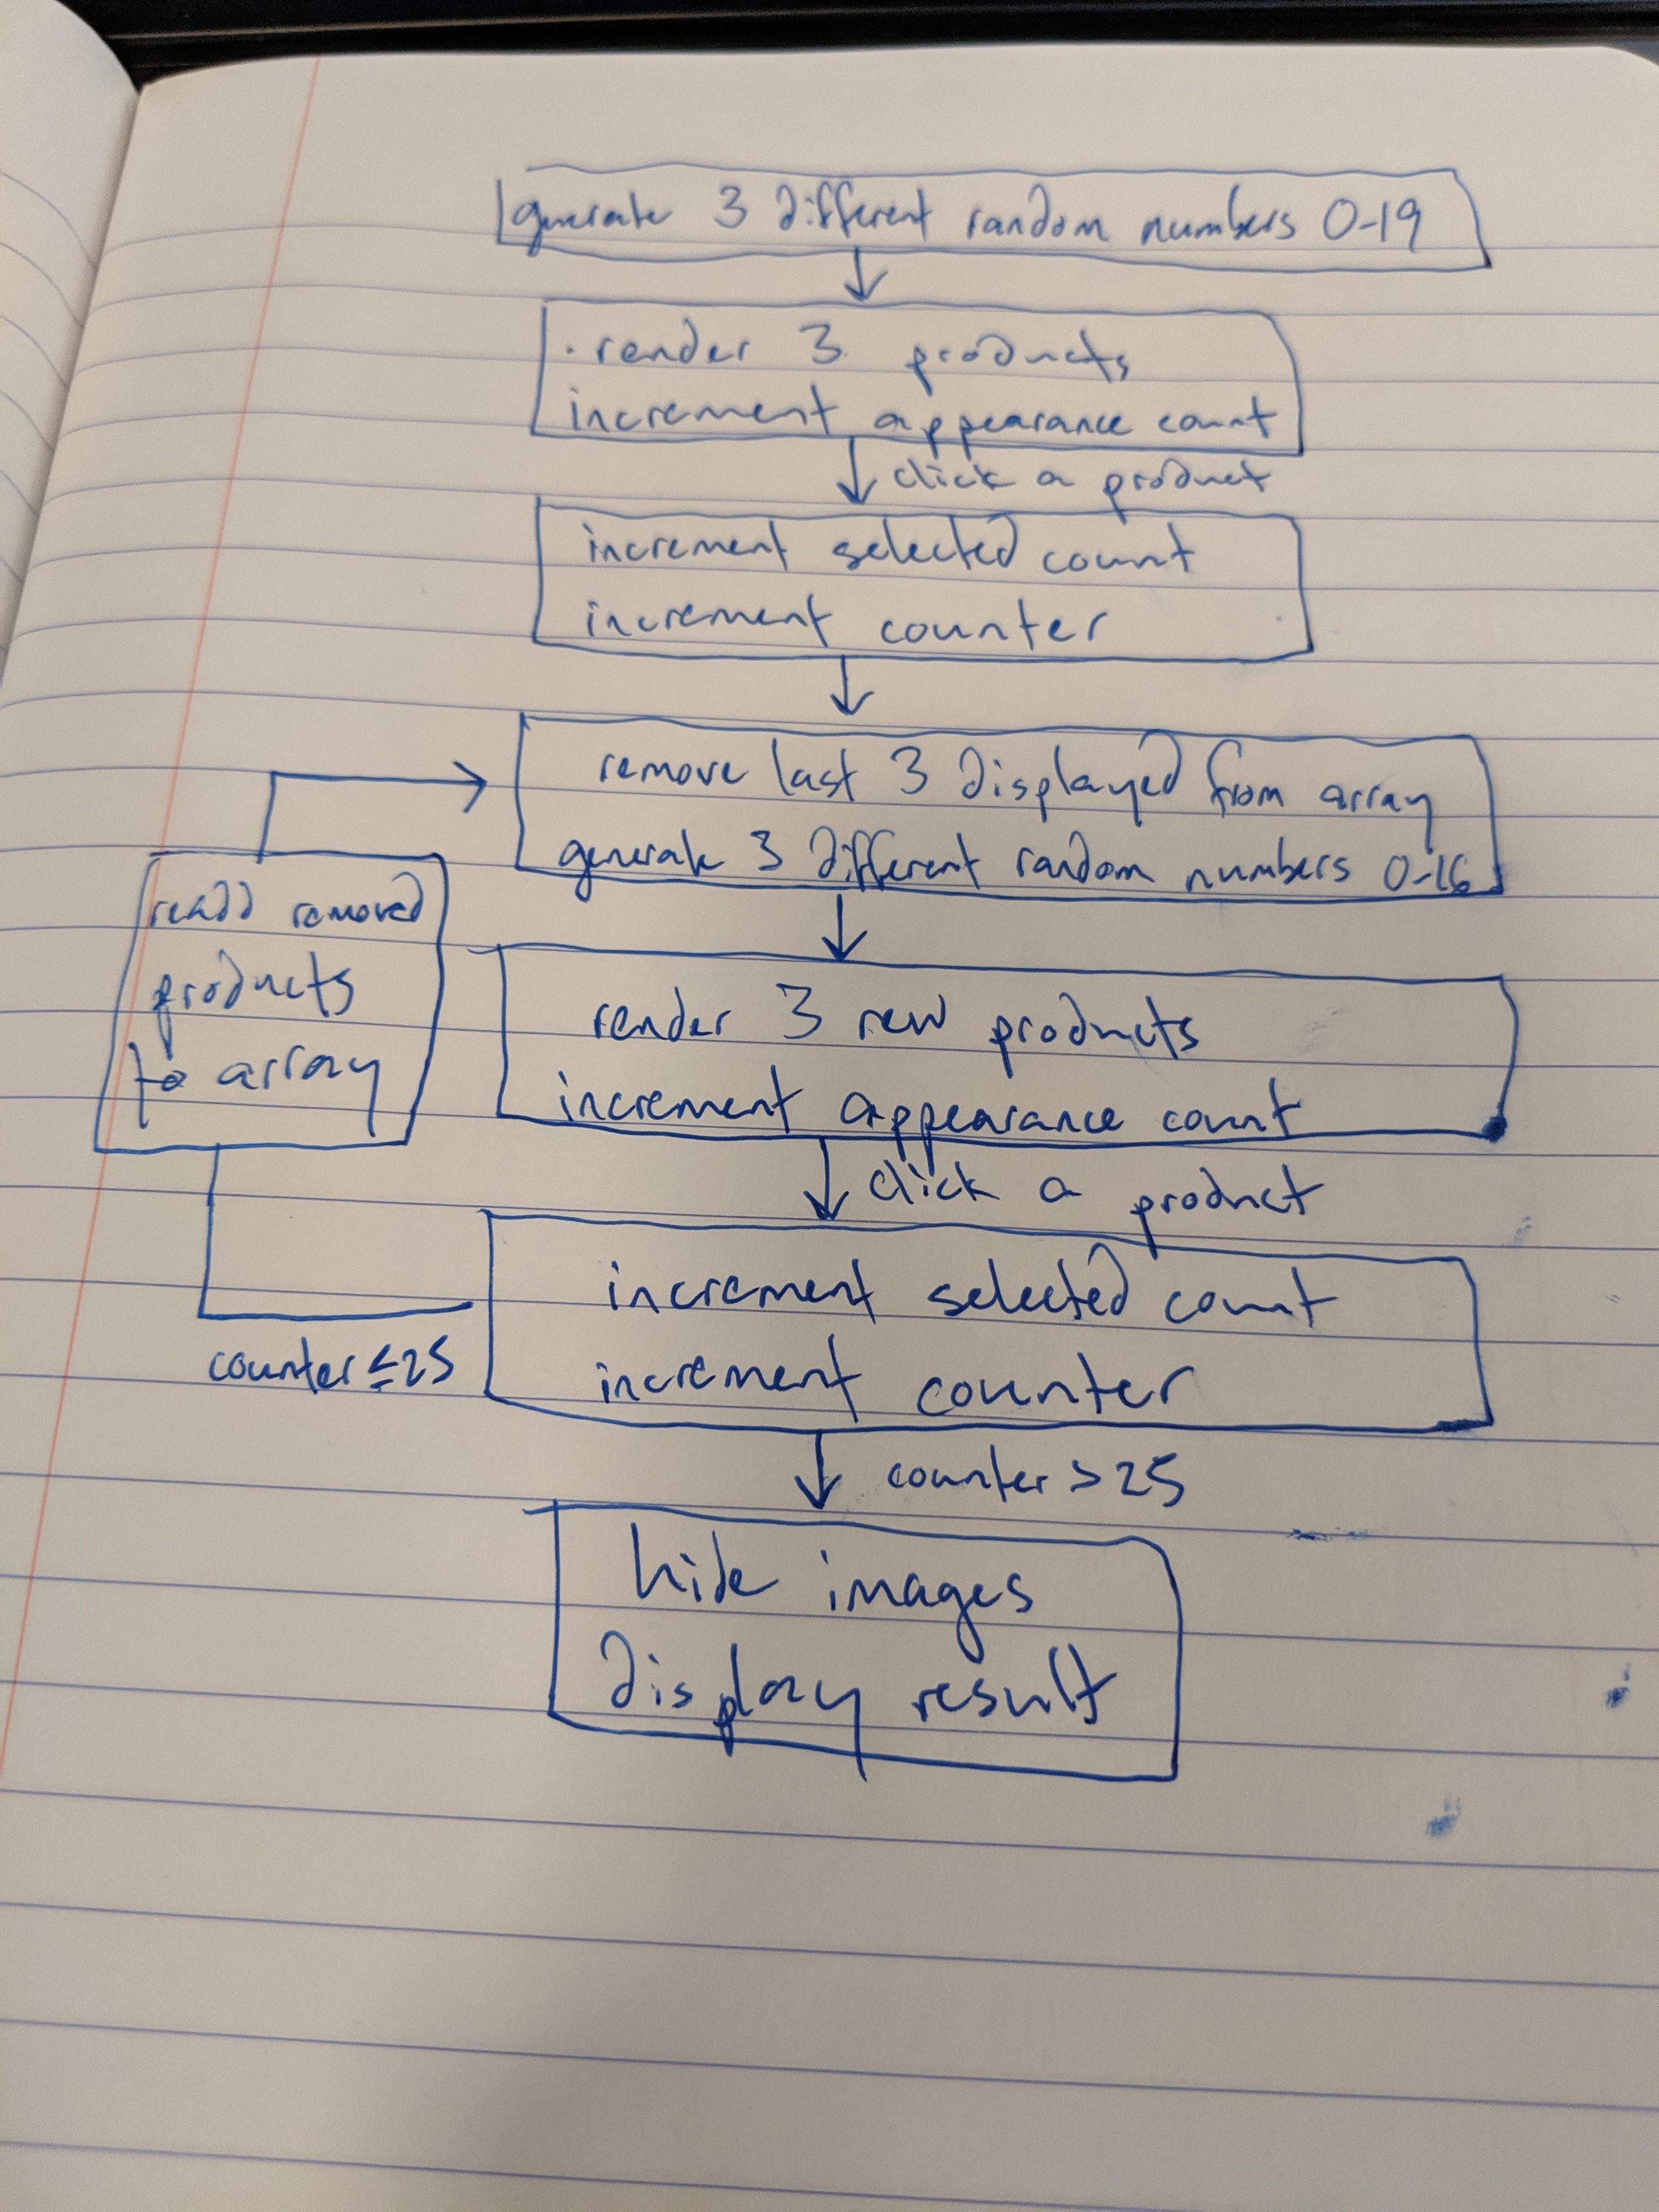 generate 3 different random numbers 0-19
· render 3 products
increment appearance count
click a product
increment selected count
increment counter
remove last 3 displayed from array
generate 3 different random numbers 0-16
readd removed
products
to array
render 3 new products
increment appearance count
click a product
increment selected count
increment counter
counter ≤ 25
counter > 25
hide images
display result